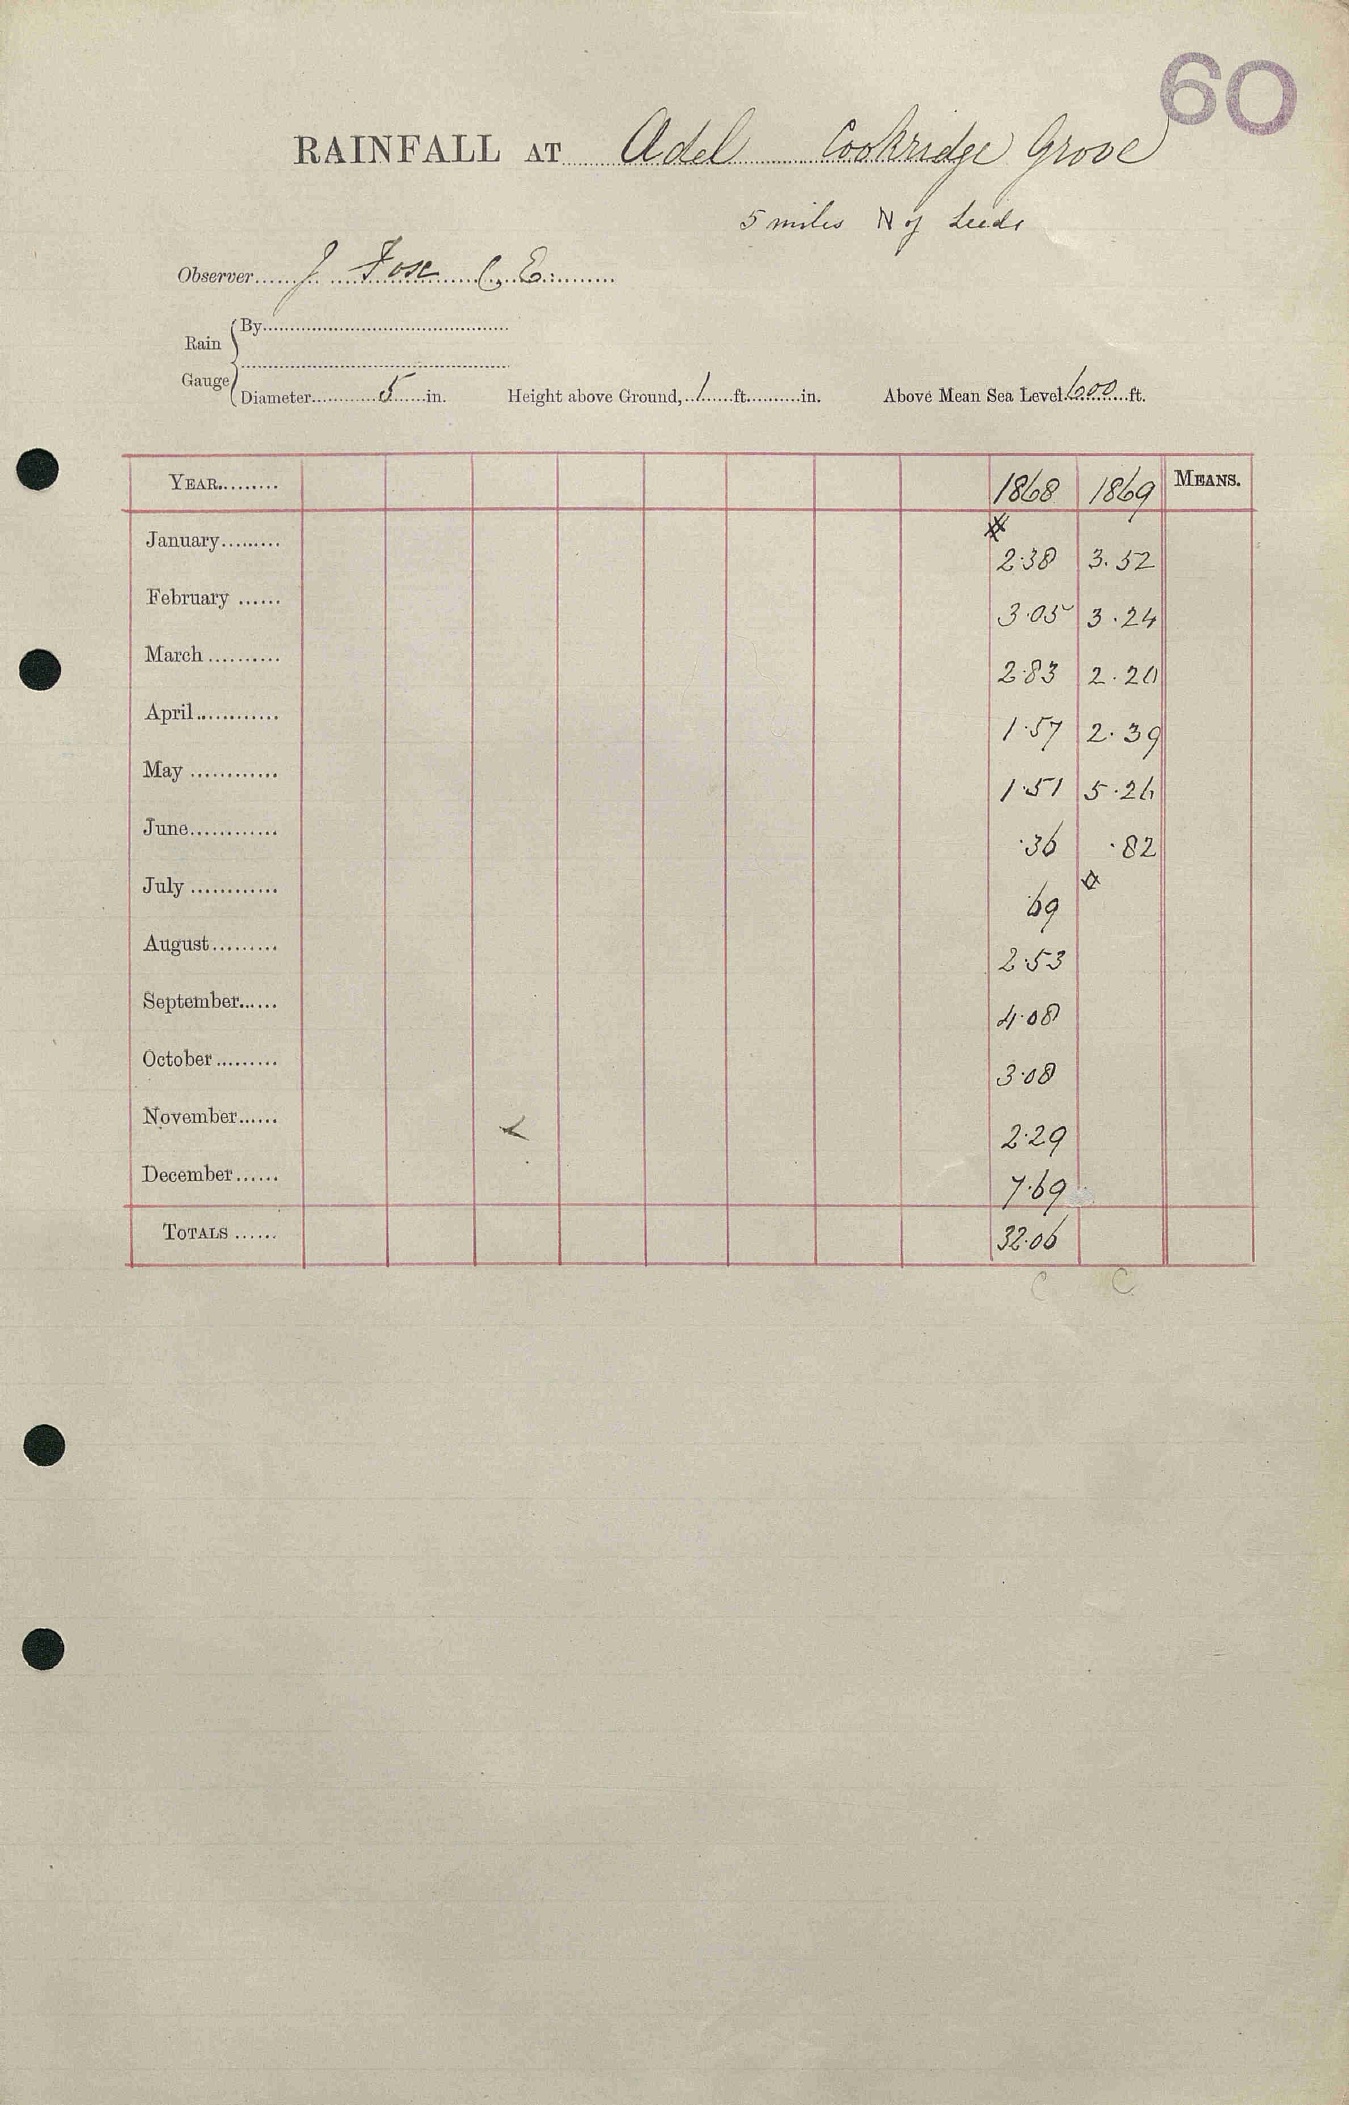 60
RAINFALL AT Adel Cookridge Grove
5 miles N of Leeds
Observer J Fox C, E.
Rain Gauge
By
Diameter 5 in. Height above Ground, 1 ft. in. Above Mean Sea Level 600 ft.
YEAR 1868 1869 MEANS.
January 2.38 3.52
February 3.05 3.24
March 2.83 2.20
April 1.57 2.39
May 1.51 5.26
June .36 .82
July .69
August 2.53
September 4.08
October 3.08
November 2.29
December 7.69
TOTALS 32.06
C C